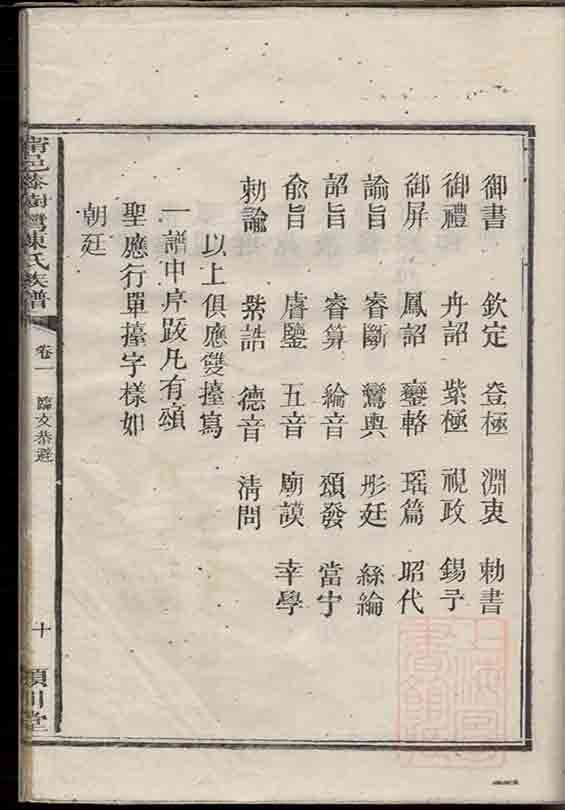 御書 欽定 登極 淵衷 勅書
御禮 丹詔 紫極 視政 錫予
御屏 鳳詔 鑾輅 瑶篇 昭代
諭旨 睿斷 鸞輿 彤廷 絲綸
詔旨 睿算 綸音 頒發 當宁
俞旨 睿鑒 五音 廟謨 幸學
勅諭 誥 德音 清問
以上俱應雙擡寫
一譜中序跋凡有頌
聖應行單擡字樣如
朝廷
邑藤樹灣陳氏族譜 卷一 臨文恭避 十 潁川堂